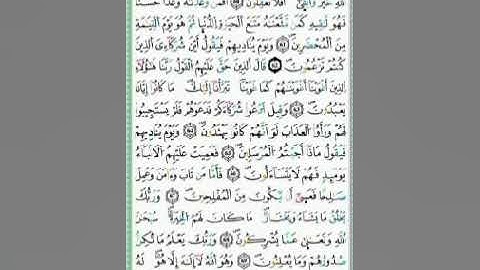 اللَّهِ خَيْرٌ وَأَبْقَىٰ أَفَلَا تَعْقِلُونَ ۝ أَفَمَن وَعَدْنَٰهُ وَعْدًا حَسَنًا
فَهُوَ لَٰقِيهِ كَمَن مَّتَّعْنَٰهُ مَتَٰعَ الْحَيَوٰةِ الدُّنْيَا ثُمَّ هُوَ يَوْمَ الْقِيَٰمَةِ
مِنَ الْمُحْضَرِينَ ۝ وَيَوْمَ يُنَادِيهِمْ فَيَقُولُ أَيْنَ شُرَكَاءِيَ الَّذِينَ
كُنتُمْ تَزْعُمُونَ ۝ قَالَ الَّذِينَ حَقَّ عَلَيْهِمُ الْقَوْلُ رَبَّنَا هَٰؤُلَاءِ
الَّذِينَ أَغْوَيْنَا أَغْوَيْنَٰهُمْ كَمَا غَوَيْنَا تَبَرَّأْنَا إِلَيْكَ مَا كَانُوا إِيَّانَا
يَعْبُدُونَ ۝ وَقِيلَ ادْعُوا شُرَكَاءَكُمْ فَدَعَوْهُمْ فَلَمْ يَسْتَجِيبُوا
لَهُمْ وَرَأَوُا الْعَذَابَ لَوْ أَنَّهُمْ كَانُوا يَهْتَدُونَ ۝ وَيَوْمَ يُنَادِيهِمْ
فَيَقُولُ مَاذَا أَجَبْتُمُ الْمُرْسَلِينَ ۝ فَعَمِيَتْ عَلَيْهِمُ الْأَنبَاءُ
يَوْمَئِذٍ فَهُمْ لَا يَتَسَاءَلُونَ ۝ فَأَمَّا مَن تَابَ وَءَامَنَ وَعَمِلَ
صَٰلِحًا فَعَسَىٰ أَن يَكُونَ مِنَ الْمُفْلِحِينَ ۝ وَرَبُّكَ
يَخْلُقُ مَا يَشَاءُ وَيَخْتَارُ مَا كَانَ لَهُمُ الْخِيَرَةُ سُبْحَٰنَ
اللَّهِ وَتَعَٰلَىٰ عَمَّا يُشْرِكُونَ ۝ وَرَبُّكَ يَعْلَمُ مَا تُكِنُّ
صُدُورُهُمْ وَمَا يُعْلِنُونَ ۝ وَهُوَ اللَّهُ لَا إِلَٰهَ إِلَّا هُوَ لَهُ